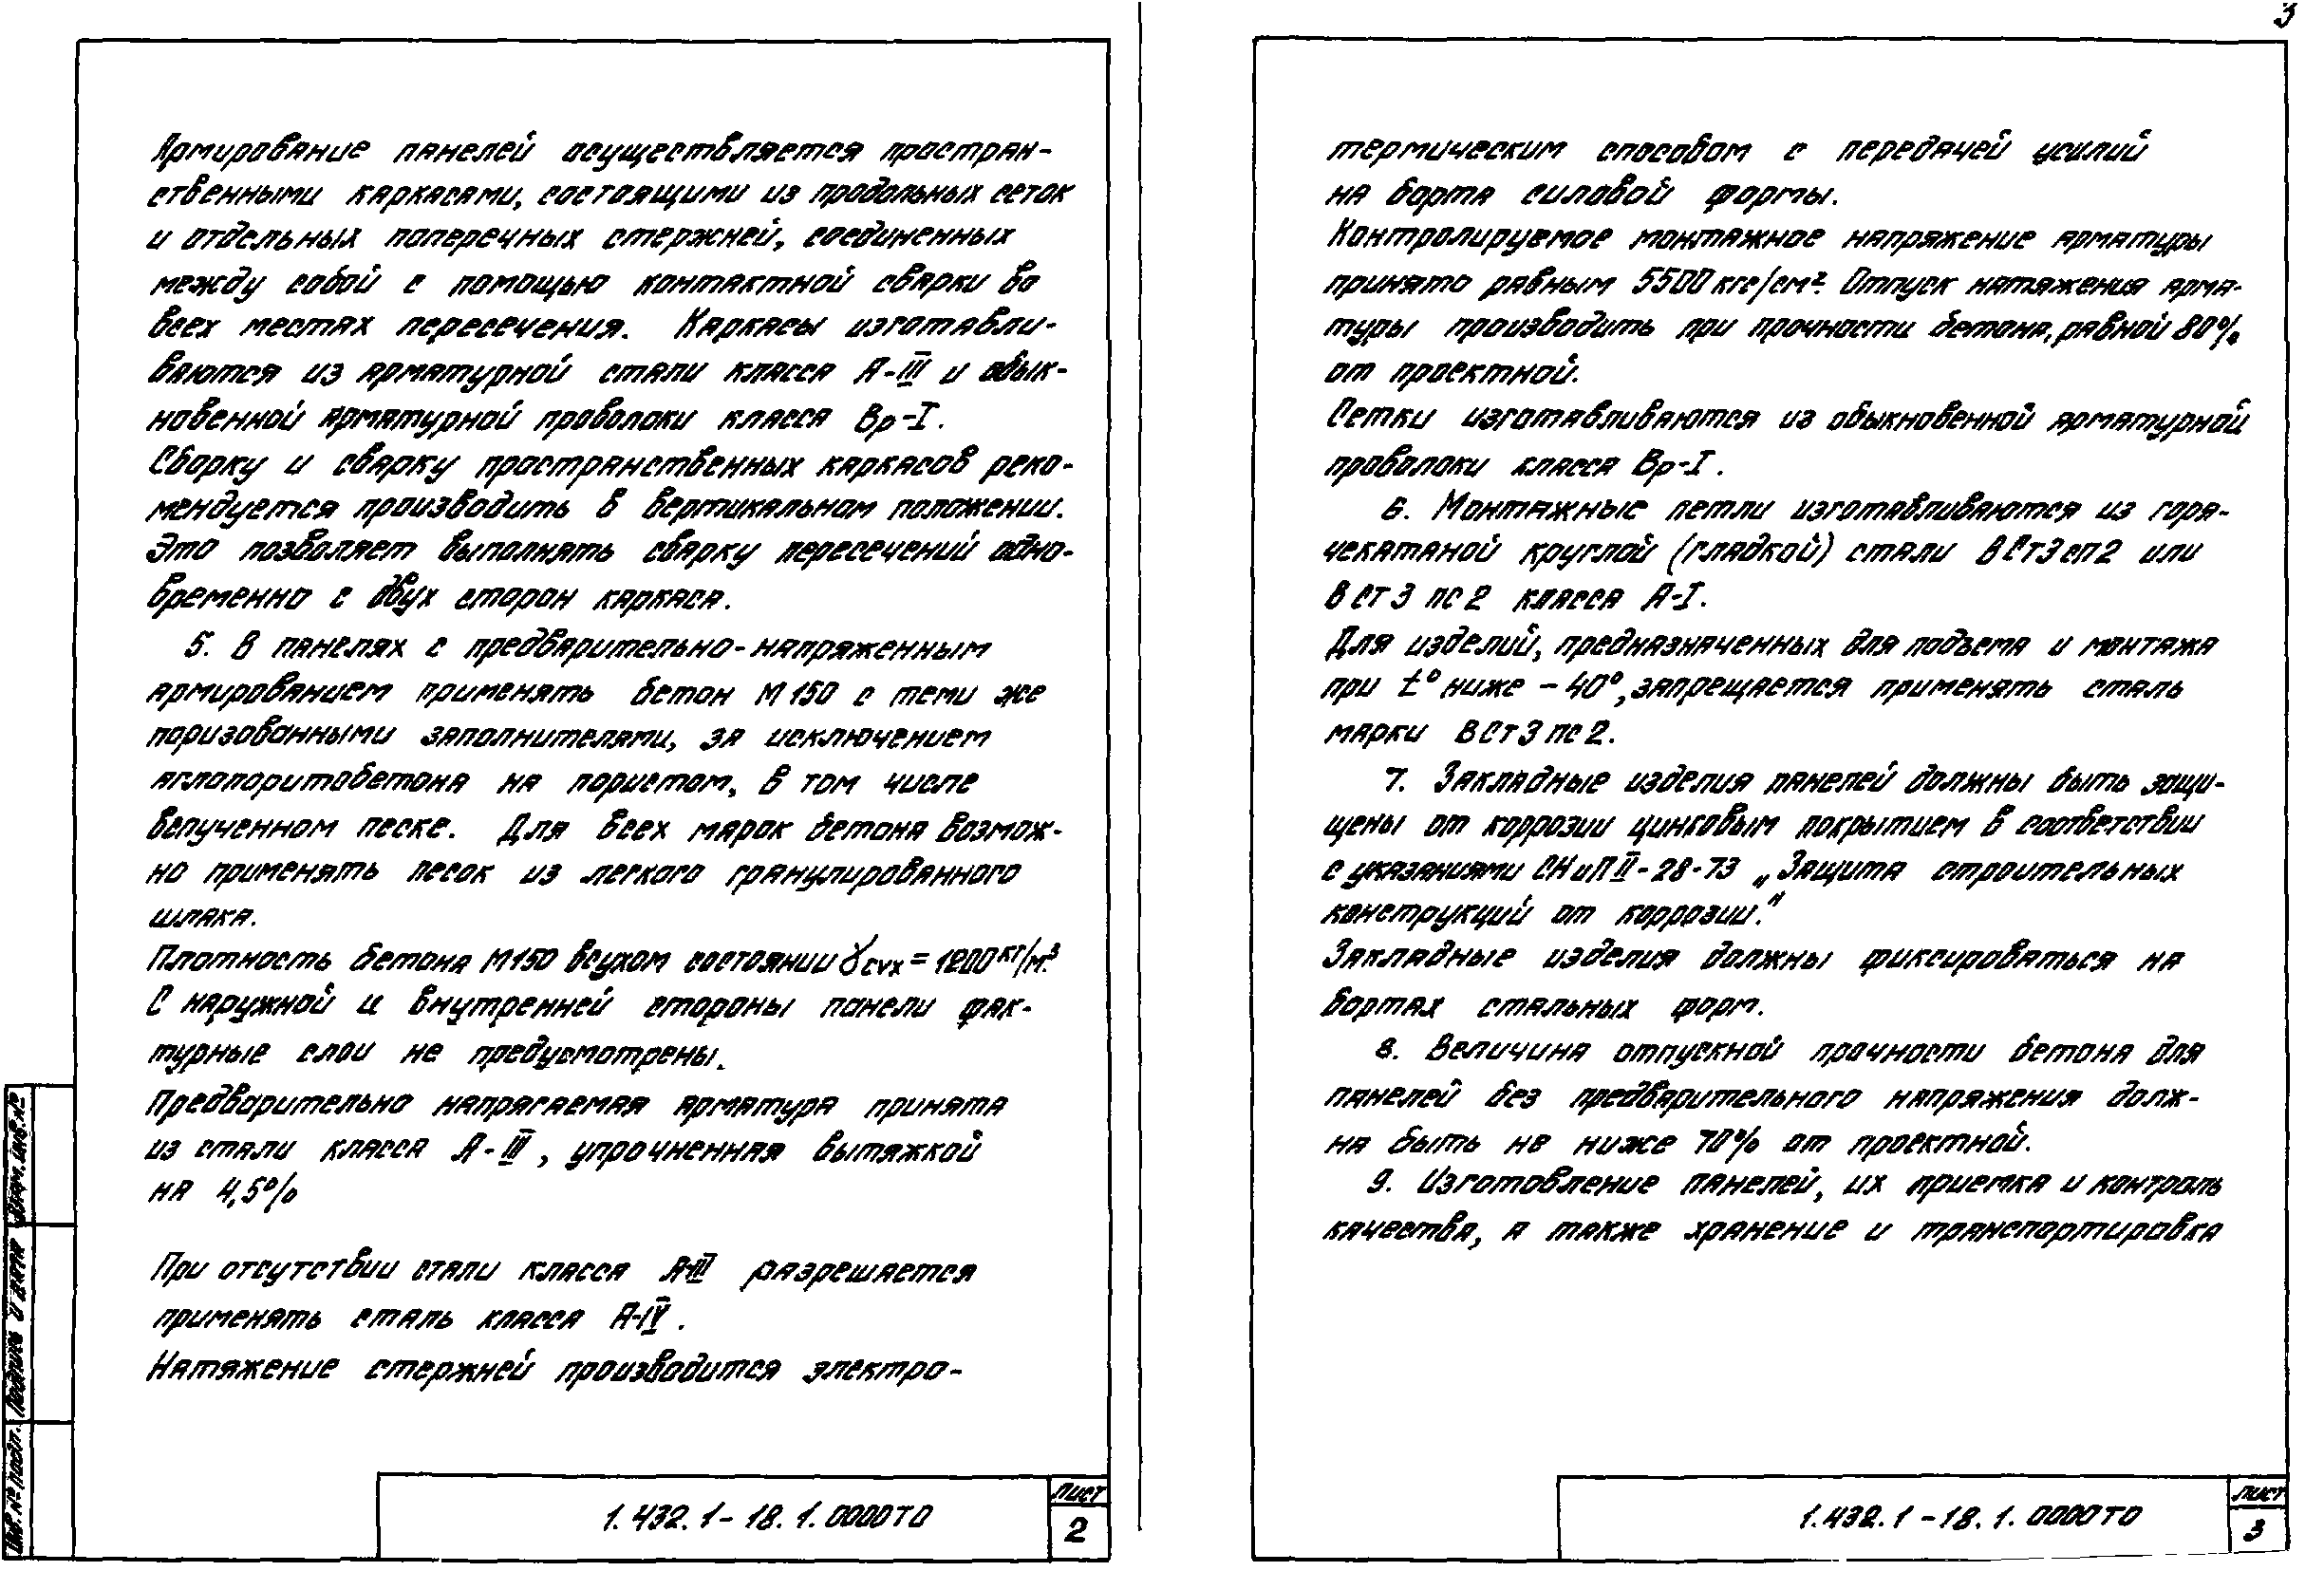 Армирование панелей осуществляется простран-
ственными каркасами, состоящими из продольных сеток
и отдельных поперечных стержней, соединенных
между собой с помощью контактной сварки во
всех местах пересечения. Каркасы изготавли-
ваются из арматурной стали класса А-III и обык-
новенной арматурной проволоки класса Вр-I.
Сборку и сварку пространственных каркасов реко-
мендуется производить в вертикальном положении.
Это позволяет выполнять сварку пересечений одно-
временно с двух сторон каркаса.
5. В панелях с предварительно-напряженным
армированием применять бетон М150 с теми же
поризованными заполнителями, за исключением
аглопоритобетона на пористом, в том числе
вспученном песке. Для всех марок бетона возмож-
но применять песок из легкого гранулированного
шлака.
Плотность бетона М150 всухом состоянии γсух = 1200 кг/м³.
С наружной и внутренней стороны панели фак-
турные слои не предусмотрены.
Предварительно напрягаемая арматура принята
из стали класса А-III, упрочненная вытяжкой
на 4,5%
При отсутствии стали класса А-III разрешается
применять сталь класса А-IV.
Натяжение стержней производится электро-
1.432.1-18.1.0000ТО
Лист
2
Инв.№ подл. Подпись и дата Взам.инв.№
3
термическим способом с передачей усилий
на борта силовой формы.
Контролируемое монтажное напряжение арматуры
принято равным 5500 кгс/см². Отпуск натяжения арма-
туры производить при прочности бетона, равной 80%
от проектной.
Сетки изготавливаются из обыкновенной арматурной
проволоки класса Вр-I.
6. Монтажные петли изготавливаются из горя-
чекатаной круглой (гладкой) стали ВСт3сп2 или
ВСт3пс2 класса А-I.
Для изделий, предназначенных для подъема и монтажа
при t° ниже -40°, запрещается применять сталь
марки ВСт3пс2.
7. Закладные изделия панелей должны быть защи-
щены от коррозии цинковым покрытием в соответствии
с указаниями СНиП II-28-73 „Защита строительных
конструкций от коррозии."
Закладные изделия должны фиксироваться на
бортах стальных форм.
8. Величина отпускной прочности бетона для
панелей без предварительного напряжения долж-
на быть не ниже 70% от проектной.
9. Изготовление панелей, их приемка и контроль
качества, а также хранение и транспортировка
1.432.1-18.1.0000ТО
Лист
3